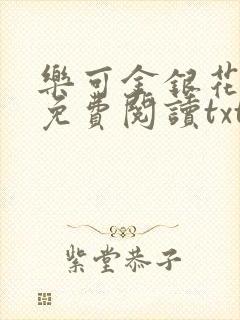 樂可金銀花
免費閱讀txt
紫堂恭子